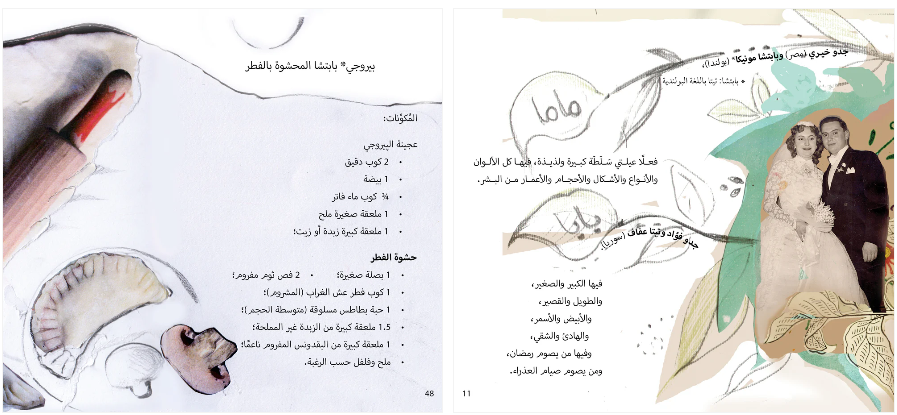 جدو خيري (مصر) وبابتشا مونيكا* (بولندا)،
* بابتشا: تيتا باللغة البولندية
ماما
فعـلًا عيلتي سَلَطَة كبيرة ولذيذة، فيهـا كل الألـوان
والأنـواع والأشـكال والأحجـام والأعمـار مـن البـشر.
بابا
جدو فؤاد وتيتا عفاف (سوريا)،
فيها الكبير والصغير،
والطويل والقصير،
والأبيض والأسمر،
والهادئ والشقي،
وفيها من يصوم رمضان،
ومن يصوم صيام العذراء.
11
بيروجي* بابتشا المحشوة بالفطر
المُكوّنات:
عجينة البيروجي
• 2 كوب دقيق
• 1 بيضة
• ¾ كوب ماء فاتر
• 1 ملعقة صغيرة ملح
• 1 ملعقة كبيرة زبدة أو زيت؛
حشوة الفطر
• 1 بصلة صغيرة؛ • 2 فص ثوم مفروم؛
• 1 كوب فطر عش الغراب (المشروم)؛
• 1 حبة بطاطس مسلوقة (متوسطة الحجم)؛
• 1.5 ملعقة كبيرة من الزبدة غير المملحة؛
• 1 ملعقة كبيرة من البقدونس المفروم ناعمًا؛
• ملح وفلفل حسب الرغبة.
48